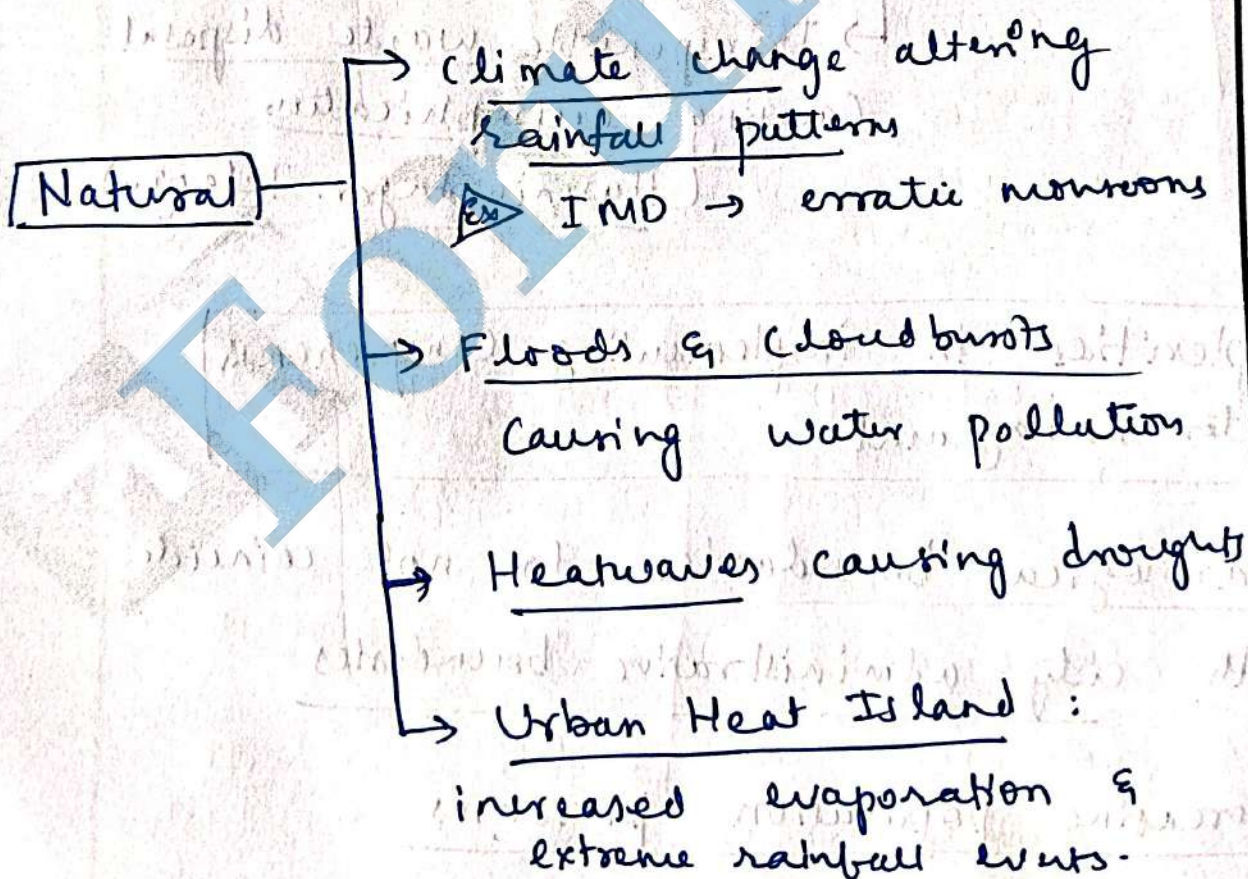 → Climate change altering
rainfall patterns
Natural
Ex IMD → erratic monsoons
→ Floods & Cloudbursts
Causing water pollution
→ Heatwaves causing droughts
→ Urban Heat Island :
increased evaporation &
extreme rainfall events.
Forum